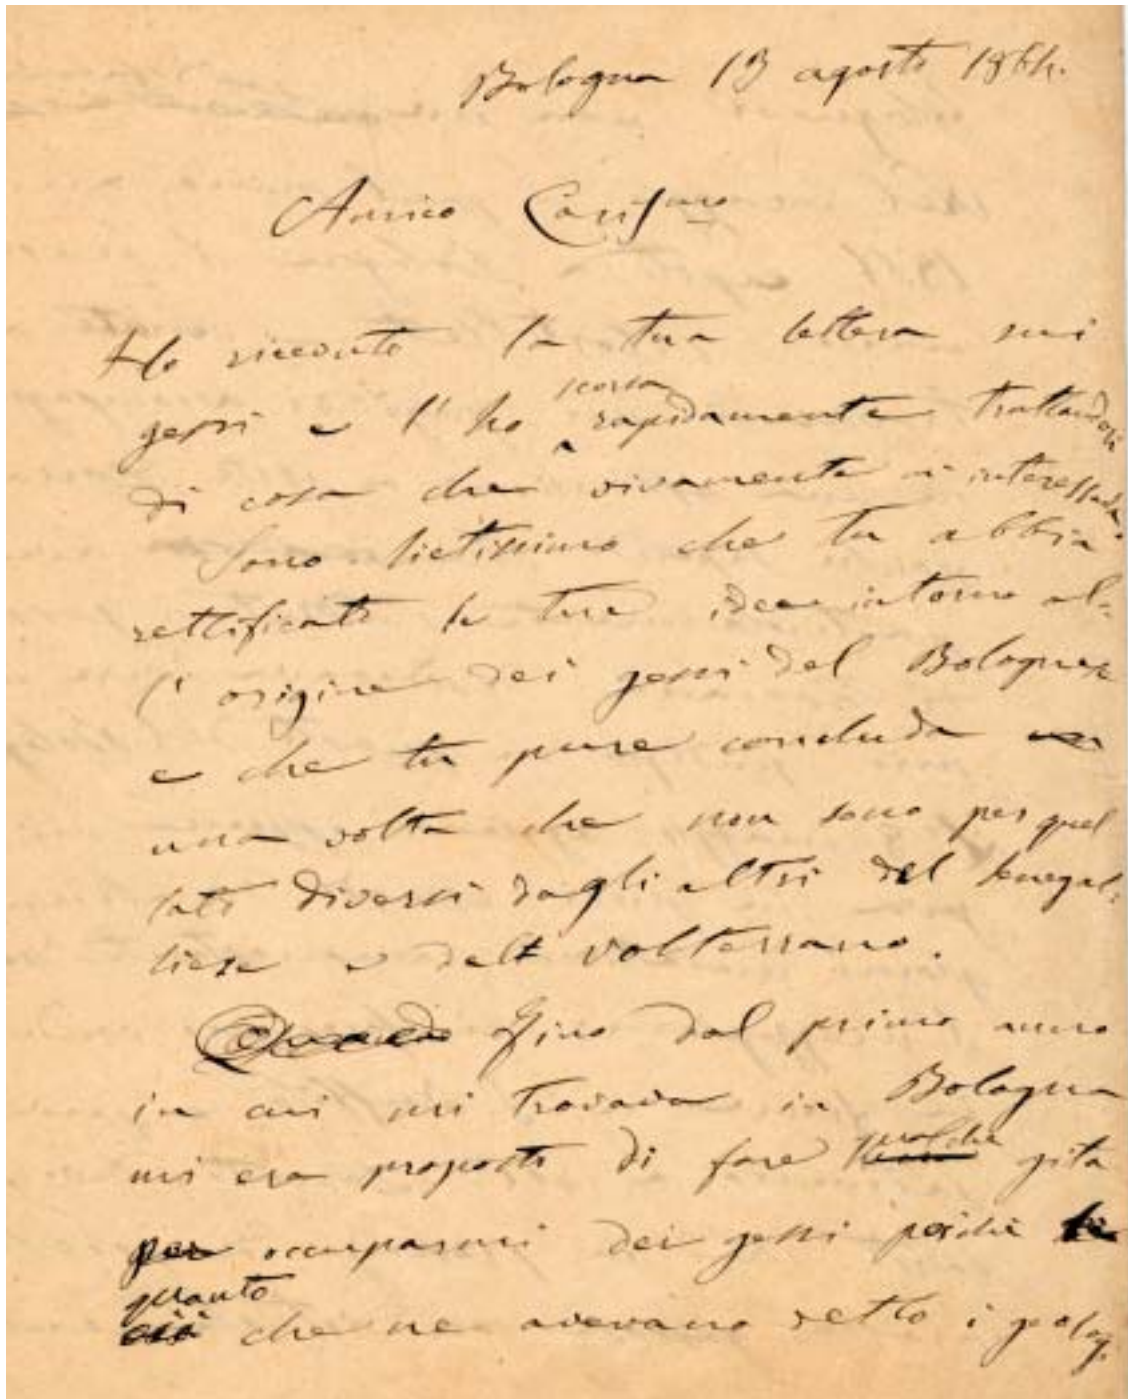 Bologna 13 agosto 1864.
Amico Carissimo
Ho ricevuto la tua lettera sui
gessi e l'ho scorsa rapidamente trattandosi
di cosa che vivamente ci interessava.
Sono lietissimo che tu abbia
rettificato le tue idee intorno al-
l'origine dei gessi del Bolognese
e che tu pure concluda
una volta che non sono per quel
lato diversi dagli altri del Senegal-
liese e del volterrano.
Fino dal primo anno
in cui mi trovava in Bologna
mi era proposto di fare qualche gita
per occuparmi dei gessi perchè
quanto
ciò che ne avevano detto i geolog.